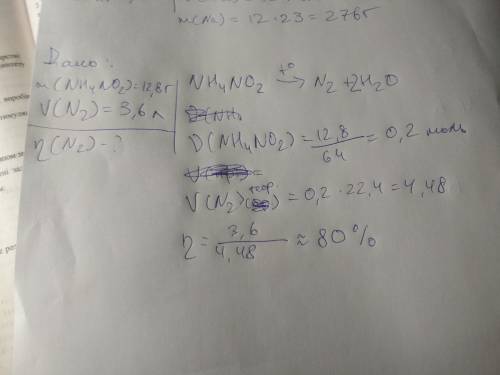 m(Na) = 12 · 23 = 276г
Дано:
m(NH4NO2)=12,8г
V(N2) = 3,6 л
η(N2) - ?
NH4NO2 t° → N2 + 2H2O
ν(NH4NO2) = 12,8 / 64 = 0,2 моль
V(N2)теор. = 0,2 · 22,4 = 4,48
η = 3,6 / 4,48 ≈ 80%